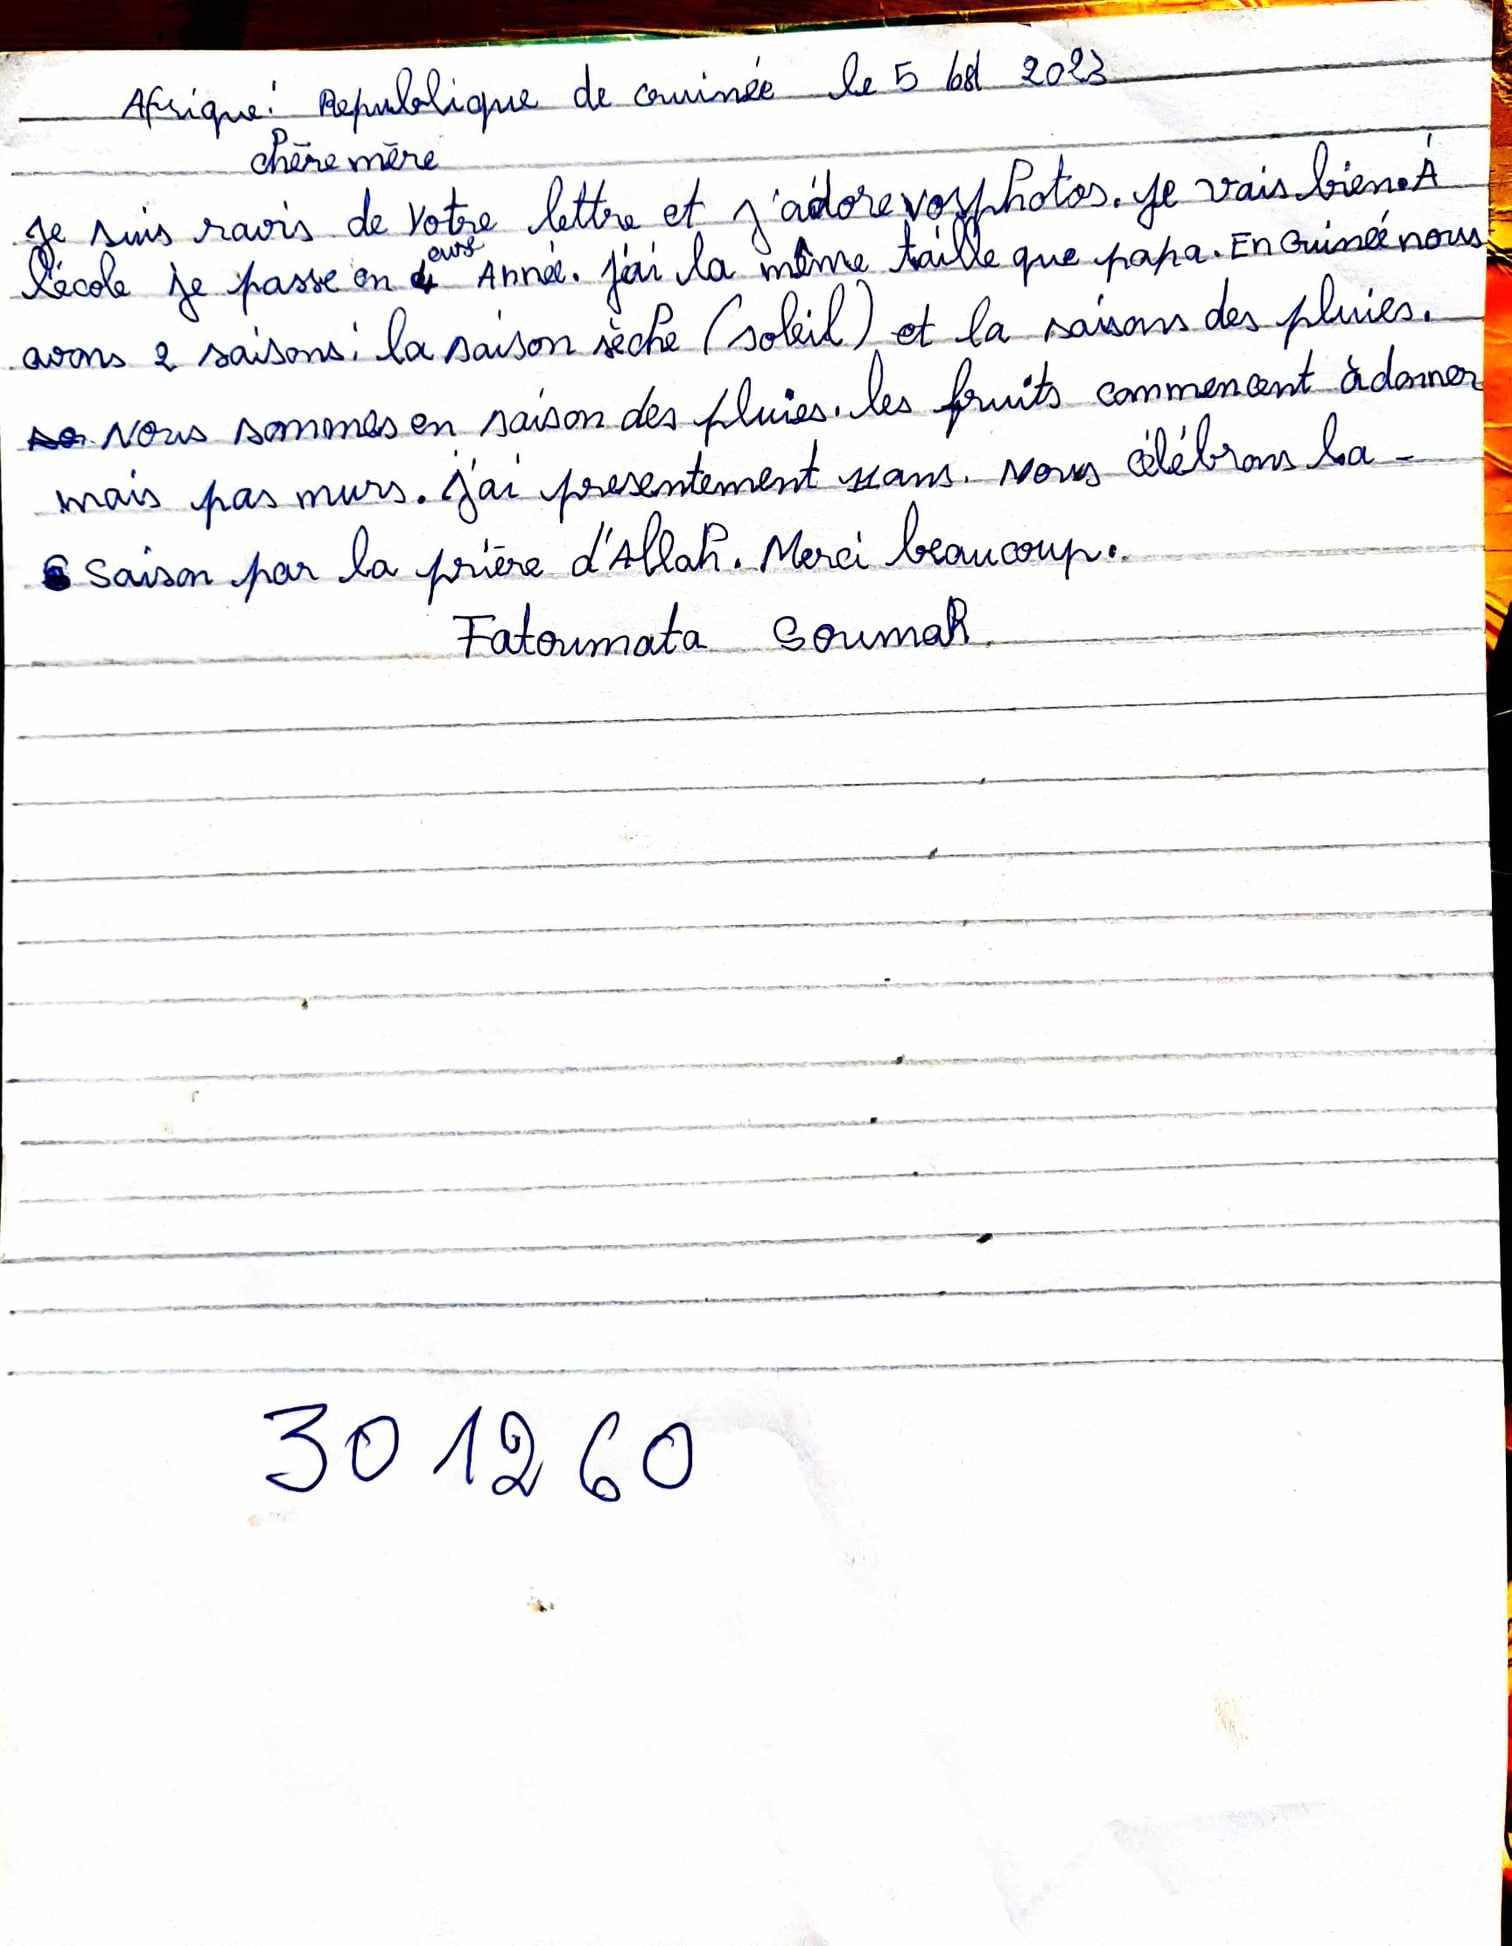 Afrique: Republique de Guinée le 5 2023
chère mère
Je suis ravis de votre lettre et j'adore vos photos. Je vais bien. À
l'école je passe en 4 Année. j'ai la même taille que papa. En Guinée nous
avons 2 saisons: la saison sèche (soleil) et la saisons des pluies.
Nous sommes en saison des pluies. les fruits commencent à donner
mais pas murs. j'ai presentement ans. Nous célébrons la -
saison par la prière d'Allah. Merci beaucoup.
Fatoumata Soumah
301260